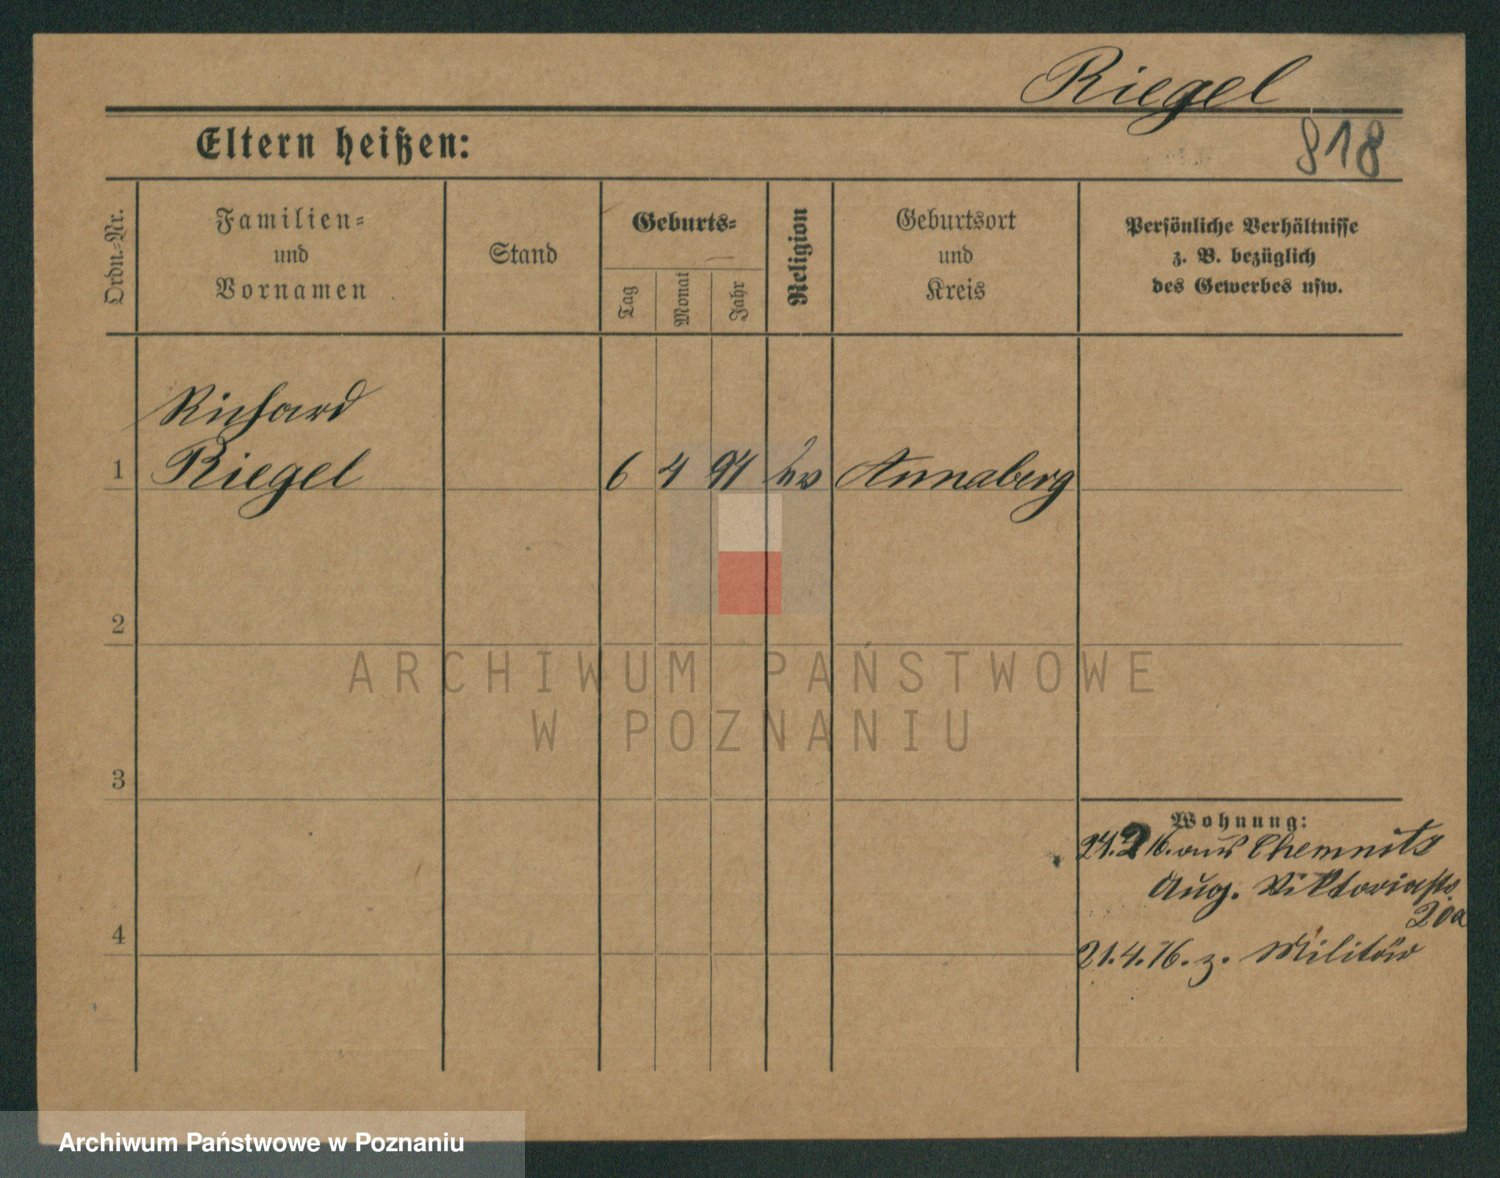 Riegel
818
Eltern heißen:
Ordn.-Nr.
Familien-
und
Vornamen
Stand
Geburts-
Tag
Monat
Jahr
Religion
Geburtsort
und
Kreis
Persönliche Verhältnisse
z. B. bezüglich
des Gewerbes usw.
Richard
1 Riegel 6 4 97 ev Annaberg
2
ARCHIWUM PAŃSTWOWE
W POZNANIU
3
Wohnung:
24.2.16. aus Chemnitz
Aug. Viktoriastr.
20a
4
21.4.16. z. Militär
Archiwum Państwowe w Poznaniu